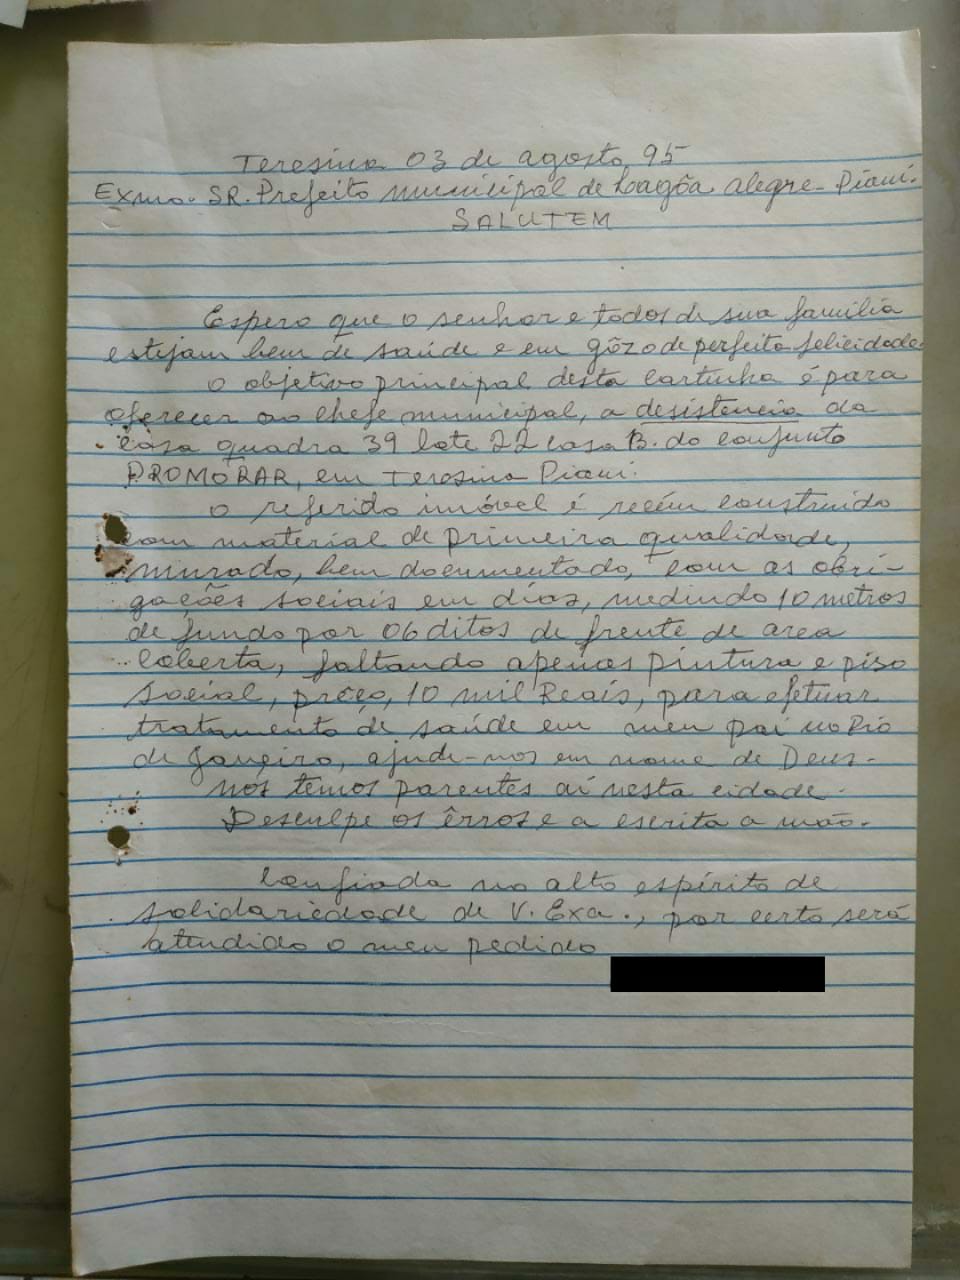 Teresina 03 de agosto, 95
Exmo. SR. Prefeito municipal de Lagôa alegre - Piauí.
SALUTEM
Espero que o senhor e todos de sua família
estejam bem de saúde e em gôzo de perfeita felicidade.
O objetivo principal desta cartinha é para
oferecer ao chefe municipal, a desistencia da
casa quadra 39 lote 22 casa B. do conjunto
PROMORAR, em Teresina Piauí.
O referido imóvel é recém construido
com material de primeira qualidade,
murado, bem documentado, com as obri-
gações sociais em días, medindo 10 metros
de fundo por 06 ditos de frente de area
coberta, faltando apenas pintura e piso
social, preço, 10 mil Reais, para efetuar
tratamento de saúde em meu pai no Rio
de Janeiro, ajude-nos em nome de Deus.
nos temos parentes aí nesta cidade.
Desculpe os êrros e a escrita a mão.
Confiada no alto espírito de
solidariedade de V. Exa., por certo será
atendido o meu pedido